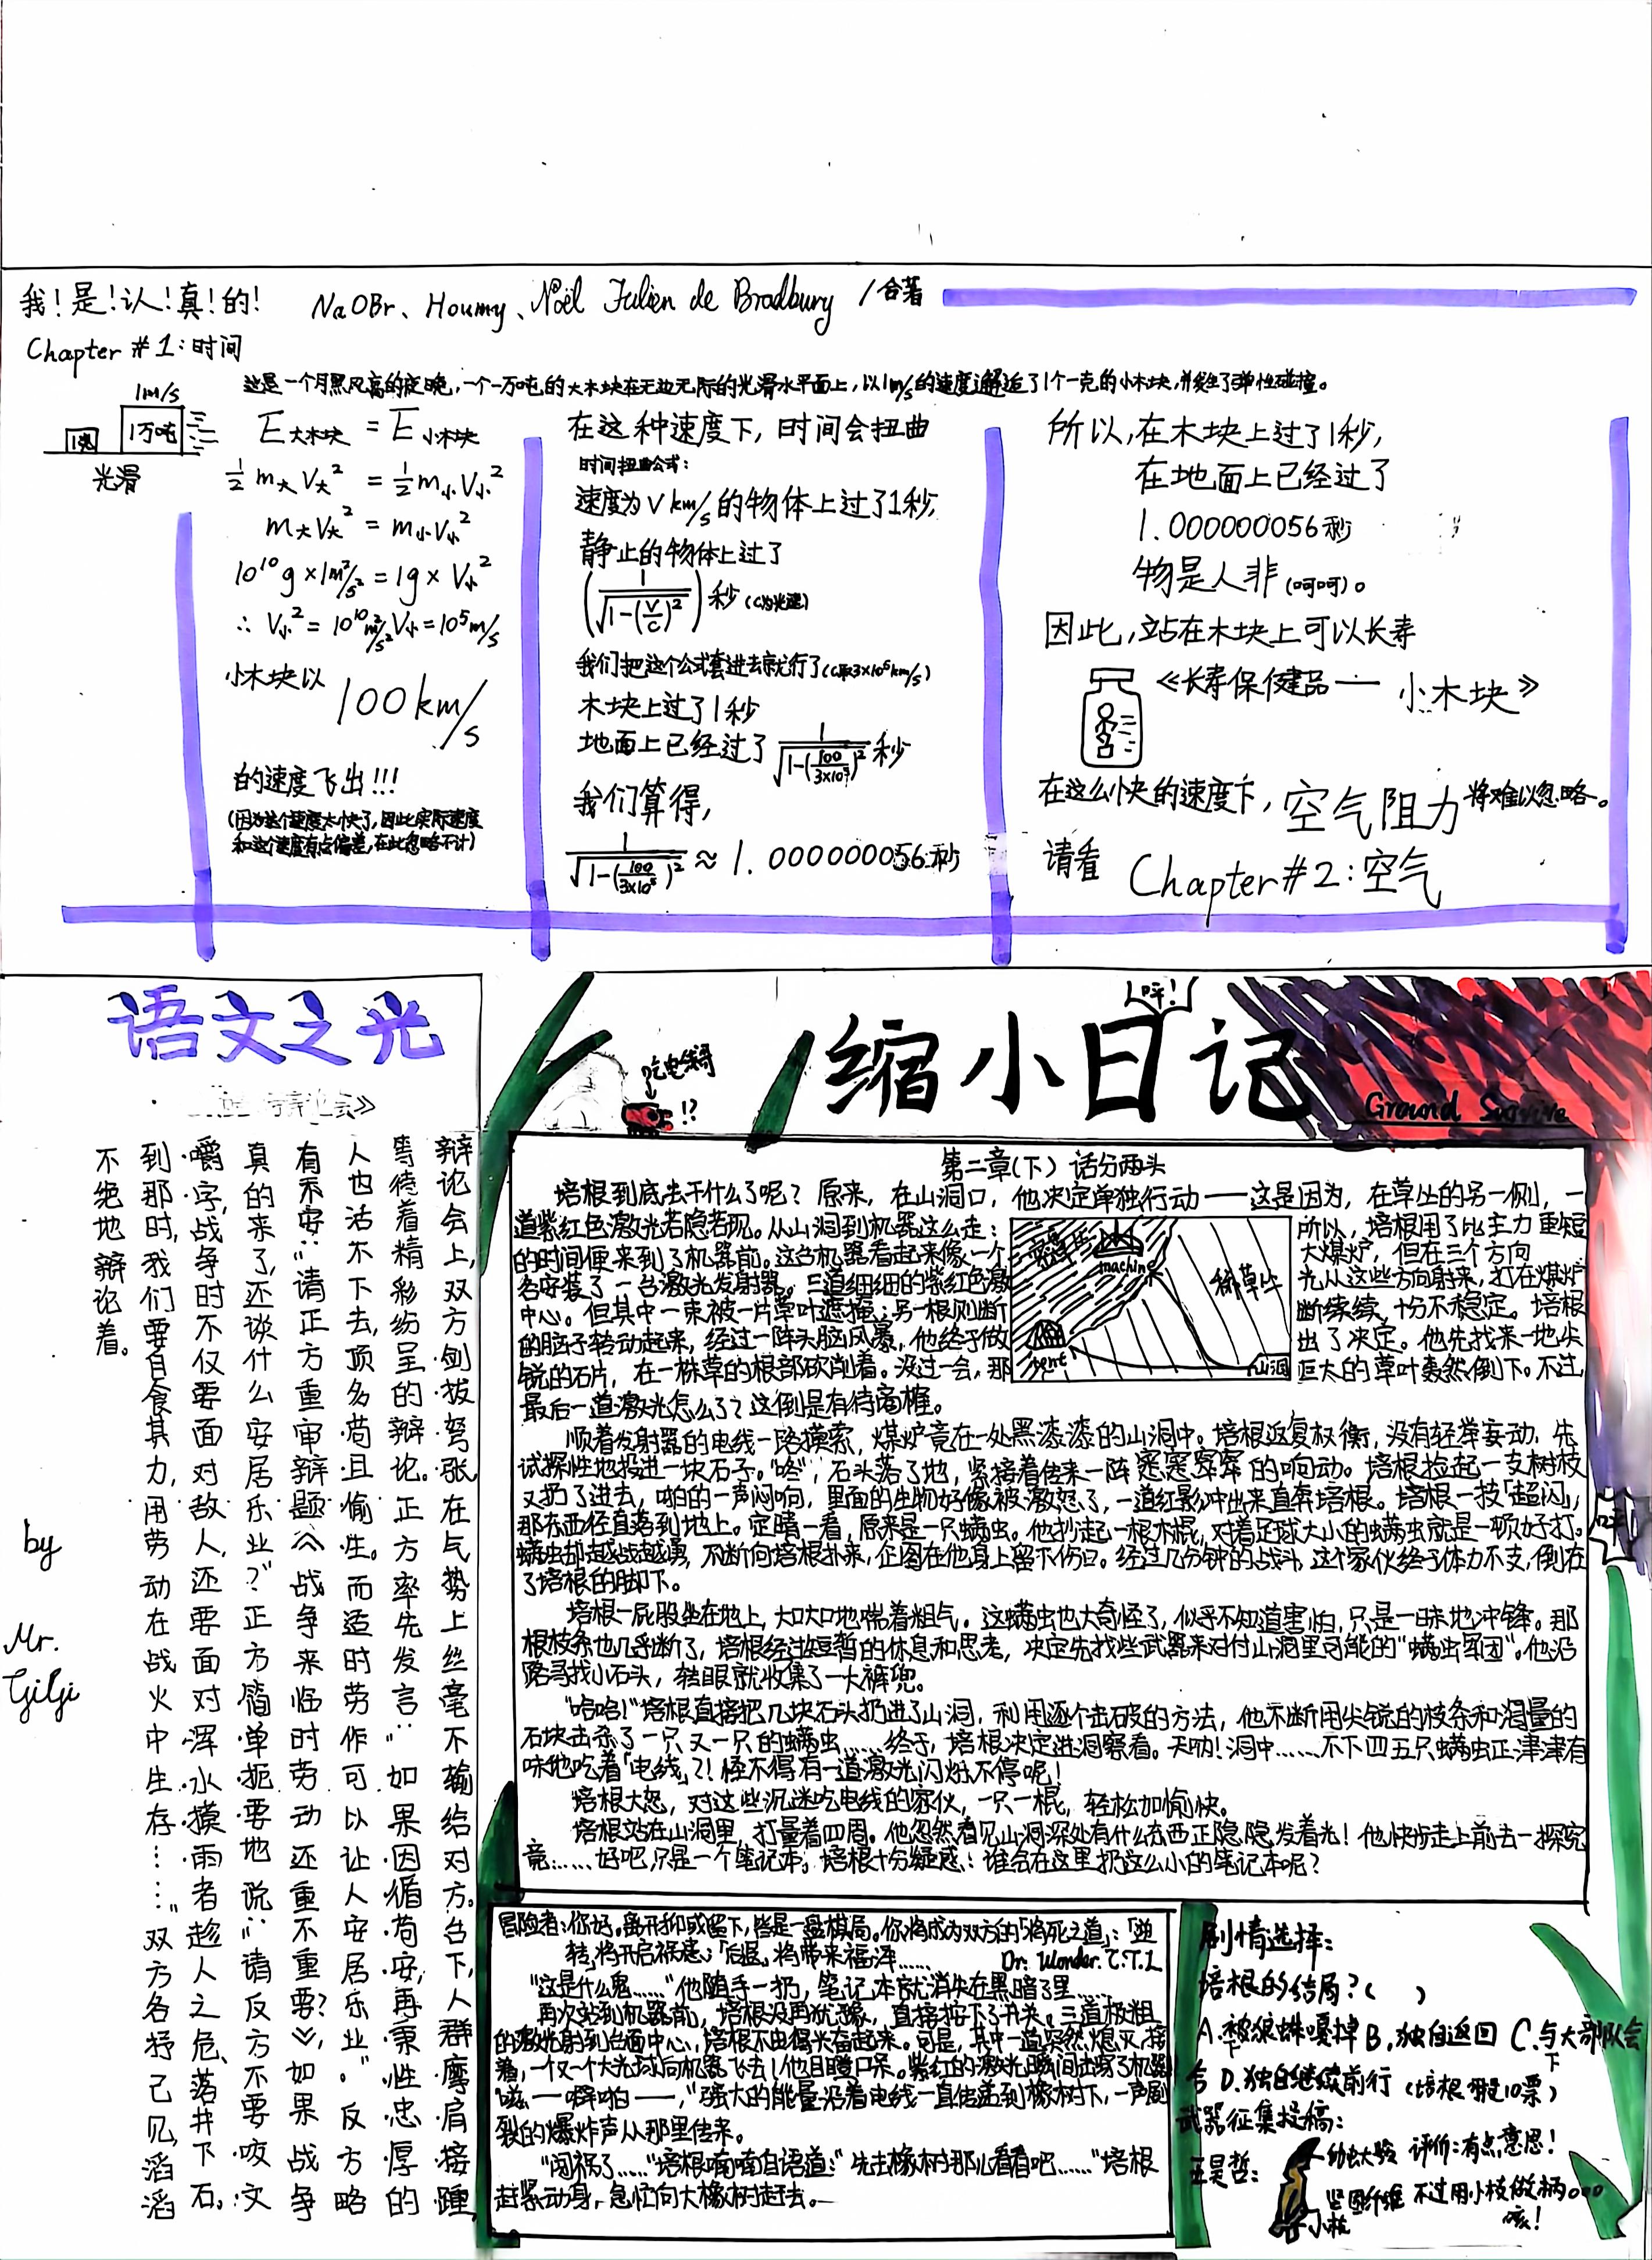 我!是!认!真!的! NaOBr、Houmy、Noël Julien de Bradbury /合著
Chapter #1:时间
这是一个月黑风高的夜晚,一个一万吨的大木块在无边无际的光滑水平面上,以1m/s的速度邂逅了1个一克的小木块,并发生了弹性碰撞。
1m/s
1克
1万吨
光滑
E大木块 = E小木块
½m大V大² = ½m小V小²
m大V大² = m小V小²
10¹⁰g×1m²/s² = 1g×V小²
∴ V小² = 10¹⁰m²/s² V小=10⁵m/s
小木块以 100km/s
的速度飞出!!!
(因为这个速度太快了,因此实际速度
和这个速度有点偏差,在此忽略不计)
在这种速度下,时间会扭曲
时间扭曲公式:
速度为V km/s的物体上过了1秒,
静止的物体上过了
(1/√(1-(V/C)²))秒(C为光速)
我们把这个公式套进去就行了(C取3×10⁵km/s)
木块上过了1秒
地面上已经过了 1/√(1-(100/3×10⁵)²) 秒
我们算得,
1/√(1-(100/3×10⁵)²) ≈ 1.000000056秒
所以,在木块上过了1秒,
在地面上已经过了
1.000000056秒
物是人非(呵呵)。
因此,站在木块上可以长寿
《长寿保健品——小木块》
在这么快的速度下,空气阻力将难以忽略。
请看 Chapter#2:空气
语文之光
辩论会上,双方剑拔弩张,在气势上丝毫不输给对方。台下,人群摩肩接踵,
等待着精彩纷呈的辩论。正方率先发言:“如果因循苟安,再秉性忠厚的
人也活不下去,顶多苟且偷生。而造时劳作可以让人安居乐业。”反方略
有不安:“请正方重审辩题《战争来临时劳动还重不重要?》,如果战争
真的来了,还谈什么安居乐业?”正方简单扼要地说:“请反方不要咬文
嚼字,战争时不仅要面对敌人,还要面对浑水摸雨者趁人之危、落井下石。
到那时,我们要自食其力,用劳动在战火中生存……”双方各抒己见,滔滔
不绝地辩论着。
by
Mr.
GiGi
缩小日记
吃电线哥
!?
Ground Survive
第二章(下) 话分两头
培根到底去干什么了呢?原来,在山洞口,他决定单独行动——这是因为,在草丛的另一侧,一
道紫红色激光若隐若现。从山洞到机器这么走: 所以,培根用了比主力重短
的时间便来到了机器前。这台机器看起来像一个 大煤炉,但在三个方向
各安装了一台激光发射器。三道细细的紫红色激 光从这些方向射来,打在煤炉
中心。但其中一束被一片草叶遮掩;另一根则断 断续续,十分不稳定。培根
的脑子转动起来,经过一阵头脑风暴,他终于做 出了决定。他先找来一地尖
锐的石片,在一株草的根部砍削着。没过一会,那 巨大的草叶轰然倒下。不过,
machine
稀草丛
tent
山洞
最后一道激光怎么了?这倒是有待商榷。
顺着发射器的电线一路摸索,煤炉竟在一处黑漆漆的山洞中。培根返复权衡,没有轻举妄动,先
试探性地投进一块石子。“咚”,石头落了地,紧接着传来一阵窸窸窣窣的响动。培根捡起一支树枝
又扔了进去,啪的一声闷响,里面的生物好像被激怒了,一道红影冲出来直奔培根。培根一技「超闪」,
那东西径直落到地上。定睛一看,原来是一只螨虫。他抄起一根木棍,对着足球大小的螨虫就是一顿好打。
螨虫却越战越勇,不断向培根扑来,企图在他身上留下伤口。经过几分钟的战斗,这个家伙终于体力不支,倒在
了培根的脚下。
培根一屁股坐在地上,大口大口地喘着粗气。这螨虫也太奇怪了,似乎不知道害怕,只是一昧地冲锋。那
根枝条也几乎断了,培根经过短暂的休息和思考,决定先找些武器来对付山洞里可能的“螨虫军团”。他沿
路寻找小石头,转眼就收集了一大裤兜。
“哈哈!”培根直接把几块石头扔进了山洞,利用逐个击破的方法,他不断用尖锐的枝条和海量的
石块击杀了一只又一只的螨虫……终于,培根决定进洞察看。天呐!洞中……不下四五只螨虫正津津有
味地吃着「电线」?!怪不得有一道激光闪烁不停呢!
培根大怒,对这些沉迷吃电线的家伙,一只一棍,轻松加愉快。
培根站在山洞里,打量着四周。他忽然看见山洞深处有什么东西正隐隐发着光!他快步走上前去一探究
竟……好吧,只是一个笔记本。培根十分疑惑:谁会在这里扔这么小的笔记本呢?
冒险者:你好。离开抑或留下,皆是一盘棋局。你将成为双方的「将死之道」:「逆
转」将开启祸患;「后退」将带来福泽…… Dr. Wonder. C.T.I
“这是什么鬼……”他随手一扔,笔记本就消失在黑暗了里……
再次站到机器前,培根没再犹豫,直接按下了开关。三道极粗
的激光射到台面中心,培根不由得兴奋起来。可是,其中一道突然熄灭,接
着,一个大光球向机器飞去!他目瞪口呆。紫红的激光瞬间击穿了机器!
“嗞——噼啪——,”强大的能量沿着电线一直传递到橡树下,一声剧
裂的爆炸声从那里传来。
“闯祸了……”培根喃喃自语道:“先去橡树那儿看看吧……”培根
赶紧动身,急忙向大橡树赶去。
剧情选择:
培根的结局?( )
A.被狼蛛嘎掉 B.独自返回 C.与大部队会
合 D.独自继续前行 (培根投10票)
武器征集投稿:
王昊哲:
坚固纤维
小枝
评价:有点意思!
不过用小枝做柄。。。
咳!